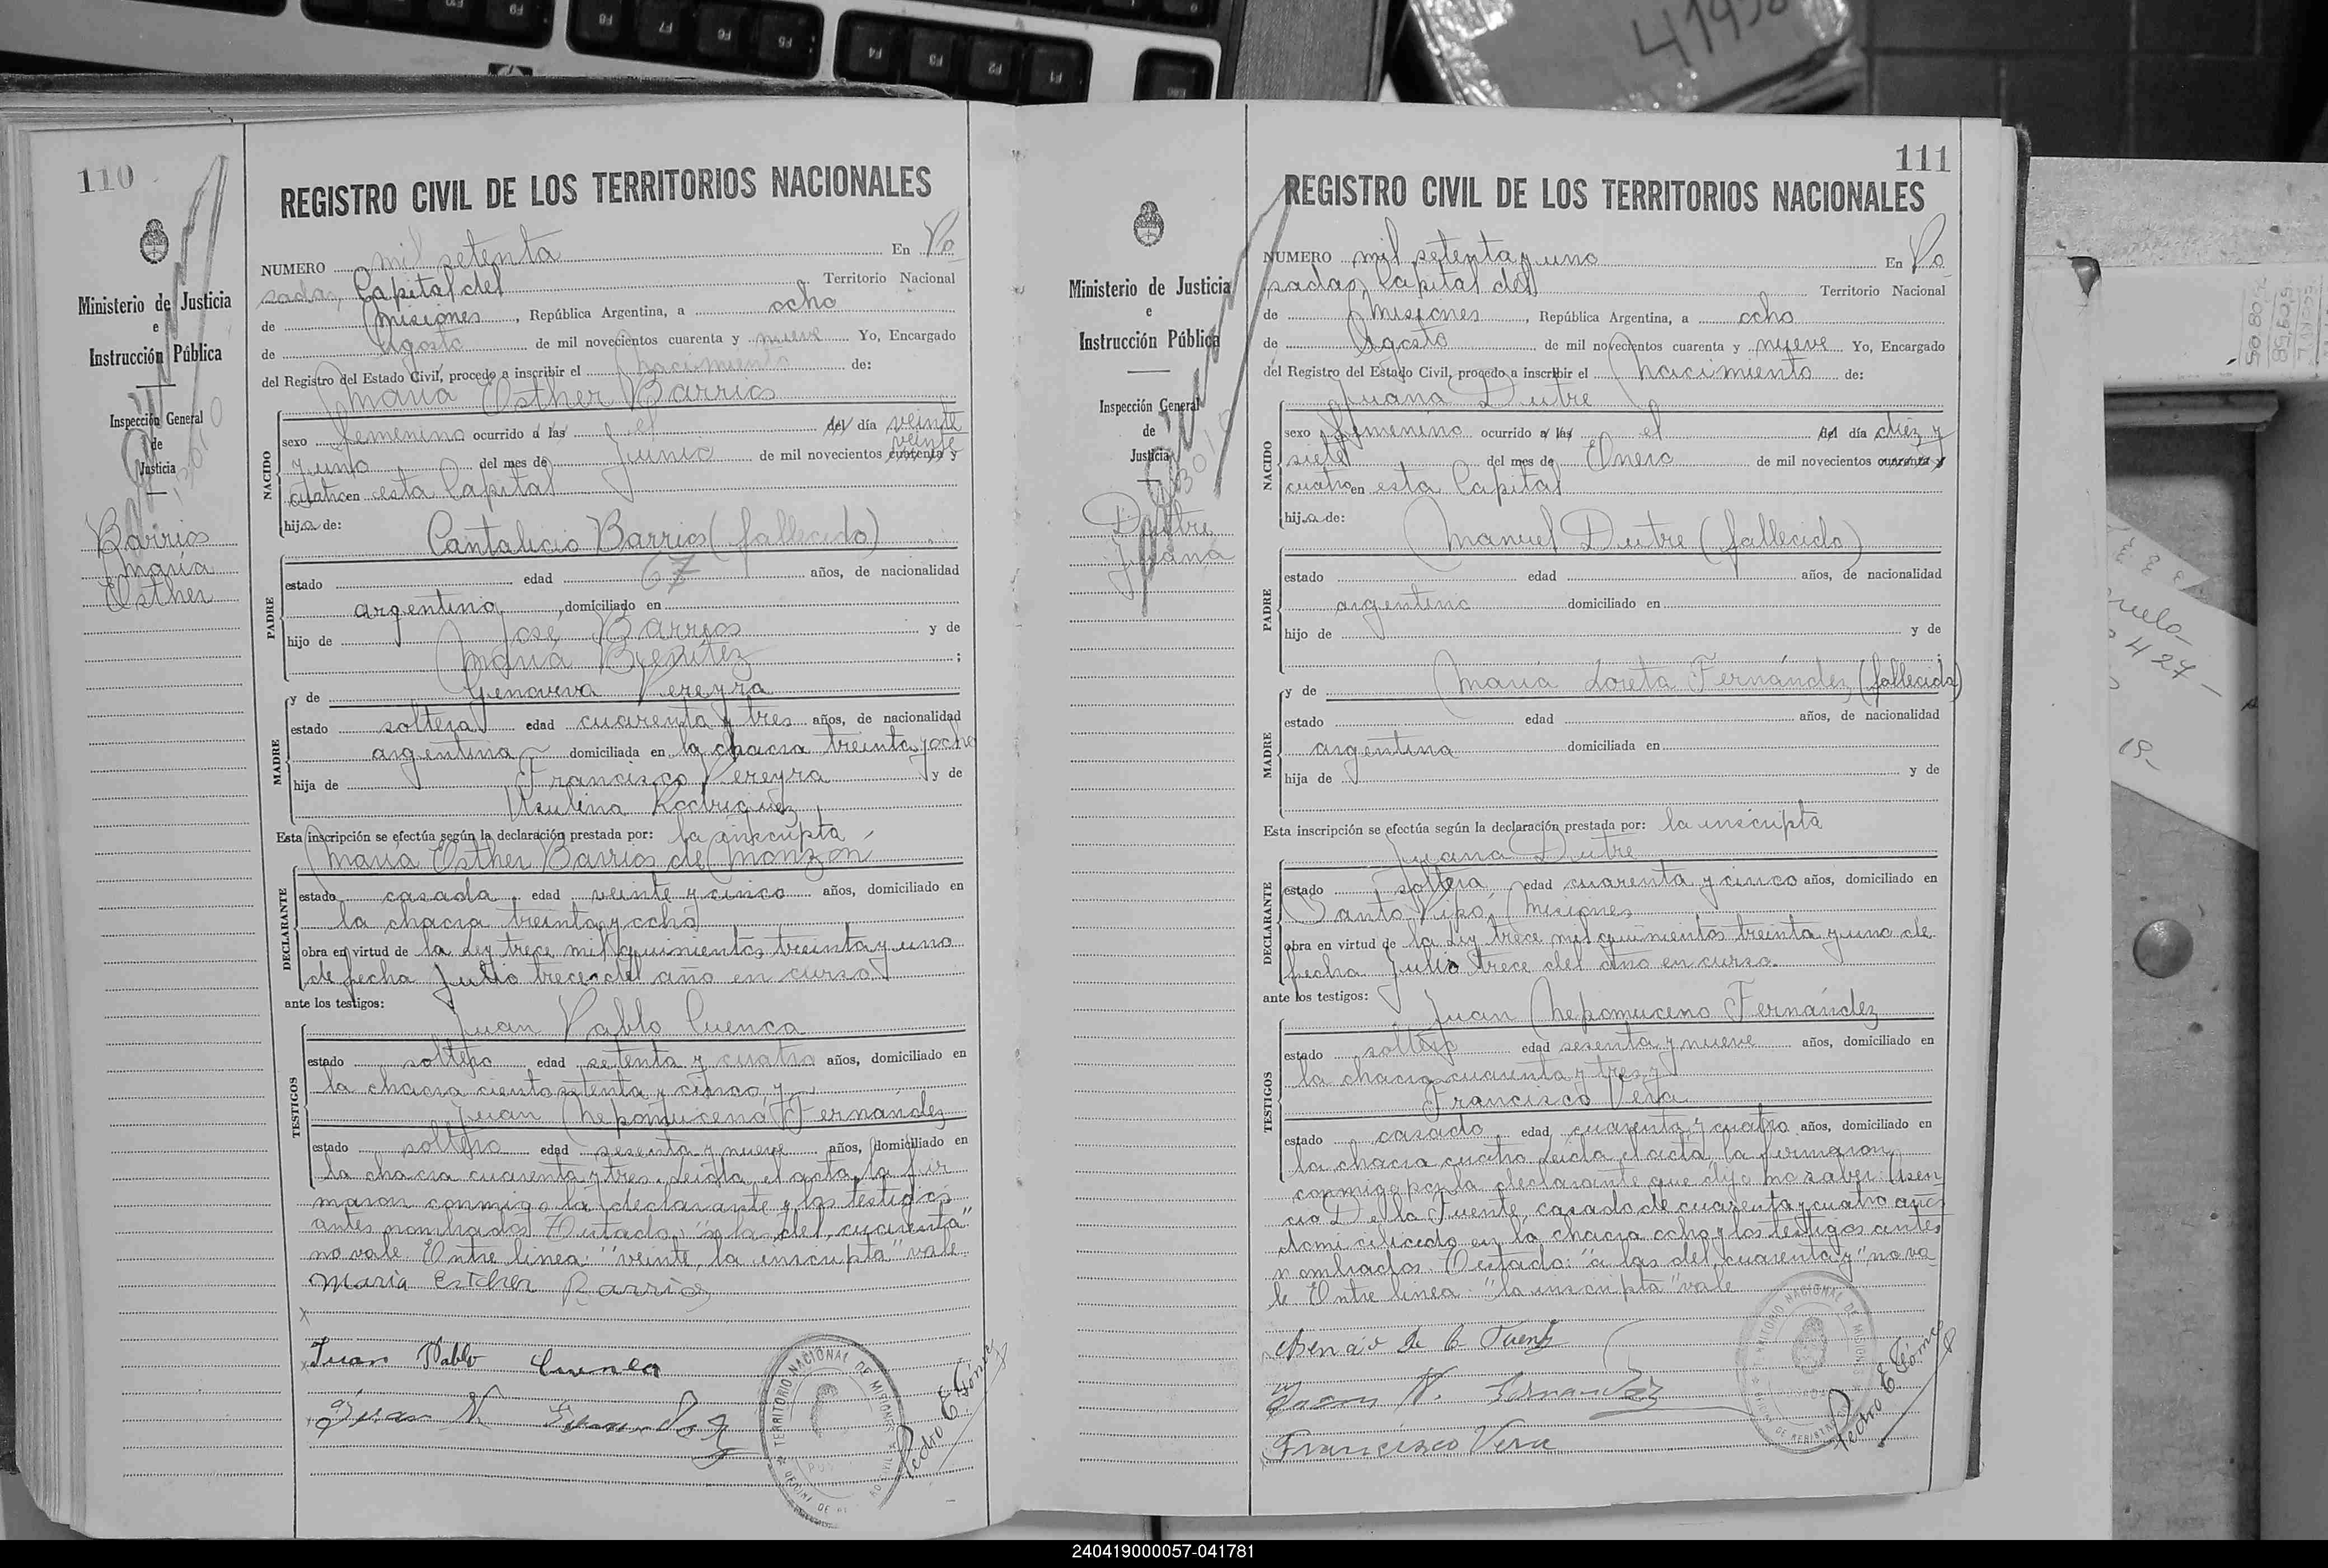 110
Ministerio de Justicia
e
Instrucción Pública
Inspección General
de
Justicia
Barrios
María
Esther
REGISTRO CIVIL DE LOS TERRITORIOS NACIONALES
NUMERO mil setenta En Po
sadas, Capital del Territorio Nacional
de Misiones, República Argentina, a ocho
de Agosto de mil novecientos cuarenta y nueve Yo, Encargado
del Registro del Estado Civil, procedo a inscribir el nacimiento de:
María Esther Barrios
NACIDO
sexo femenino ocurrido a las el del día veinte
veinte
y uno del mes de Junio de mil novecientos cuarenta y
cuatro en esta Capital
hija de:
Cantalicio Barrios (fallecido)
PADRE
estado edad 67 años, de nacionalidad
argentina, domiciliado en
hijo de José Barrios y de
María Benítez ;
y de Genoveva Pereyra
MADRE
estado soltera edad cuarenta y tres años, de nacionalidad
argentina domiciliada en la chacra treinta y ocho
hija de Francisco Pereyra y de
Paulina Rodriguez
Esta inscripción se efectúa según la declaración prestada por: la inscripta
María Esther Barrios de Monzón
DECLARANTE
estado casada edad veinte y cinco años, domiciliado en
la chacra treinta y ocho
obra en virtud de la Ley trece mil quinientos treinta y uno
de fecha Julio trece del año en curso
ante los testigos:
Juan Pablo Cuenca
TESTIGOS
estado soltero edad setenta y cuatro años, domiciliado en
la chacra ciento setenta y cinco y
Juan Nepomuceno Fernández
estado soltero edad sesenta y nueve años, domiciliado en
la chacra cuarenta y tres. Leída el acta, la fir
maron conmigo la declarante y los testigos
antes nombrados. Testado: "a las, del, cuarenta"
no vale. Entre linea: "veinte, la inscripta" vale.
María Esther Barrios
Juan Pablo Cuenca
Juan N. Fernandez
TERRITORIO NACIONAL DE MISIONES
Pedro E. Gómez
111
Ministerio de Justicia
e
Instrucción Pública
Inspección General
de
Justicia
Dutre
Juana
REGISTRO CIVIL DE LOS TERRITORIOS NACIONALES
NUMERO mil setenta y uno En Po
sadas, Capital del Territorio Nacional
de Misiones, República Argentina, a ocho
de Agosto de mil novecientos cuarenta y nueve Yo, Encargado
del Registro del Estado Civil, procedo a inscribir el nacimiento de:
Juana Dutre
NACIDO
sexo femenino ocurrido a las el del día diez y
siete del mes de Enero de mil novecientos cuarenta y
cuatro en esta Capital
hija de:
Manuel Dutre (fallecido)
PADRE
estado edad años, de nacionalidad
argentino domiciliado en
hijo de y de
y de María Loreta Fernández (fallecida)
MADRE
estado edad años, de nacionalidad
argentina domiciliada en
hija de y de
Esta inscripción se efectúa según la declaración prestada por: la inscripta
Juana Dutre
DECLARANTE
estado soltera edad cuarenta y cinco años, domiciliado en
Santo Pipó, Misiones
obra en virtud de la Ley trece mil quinientos treinta y uno de
fecha Julio trece del año en curso.
ante los testigos:
Juan Nepomuceno Fernández
TESTIGOS
estado soltero edad sesenta y nueve años, domiciliado en
la chacra cuarenta y tres y
Francisco Vera
estado casado edad cuarenta y cuatro años, domiciliado en
la chacra cuatro. Leida el acta, la firmaron
conmigo por la declarante que dijo no saber: Asen
cio De la Fuente, casado de cuarenta y cuatro años
domiciliado en la chacra ocho y los testigos antes
nombrados. Testado: "a las del, cuarenta y" no va
le. Entre linea: "la inscripta" vale
Asencio de la Fuente
Juan N. Fernandez
Francisco Vera
TERRITORIO NACIONAL DE MISIONES
Pedro E. Gómez
240419000057-041781